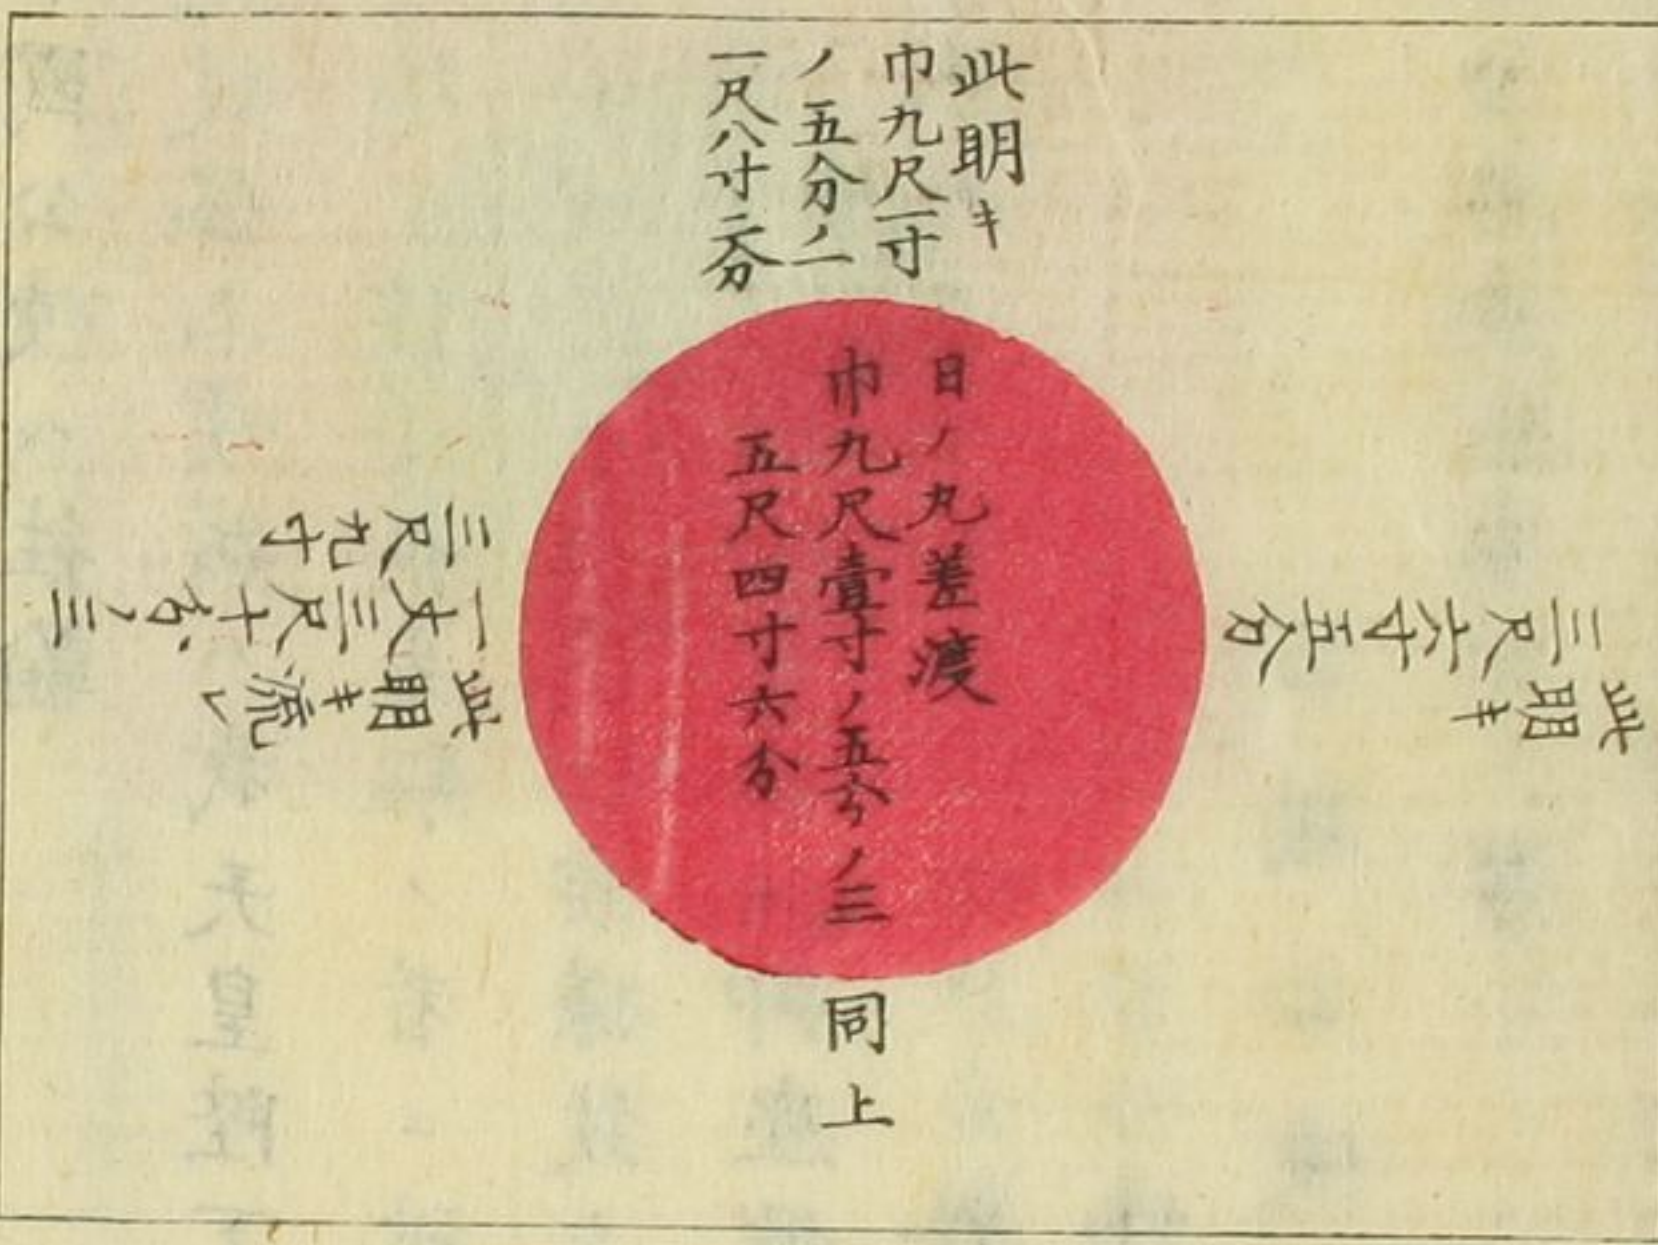 此明キ
巾九尺一寸
ノ五分ノ一
一尺八寸二分
日ノ丸差渡
巾九尺壹寸ノ五分ノ三
五尺四寸六分
同上
此明キ
三尺六寸五分
此明キ流レ
一丈三尺十分ノ三
三尺九寸